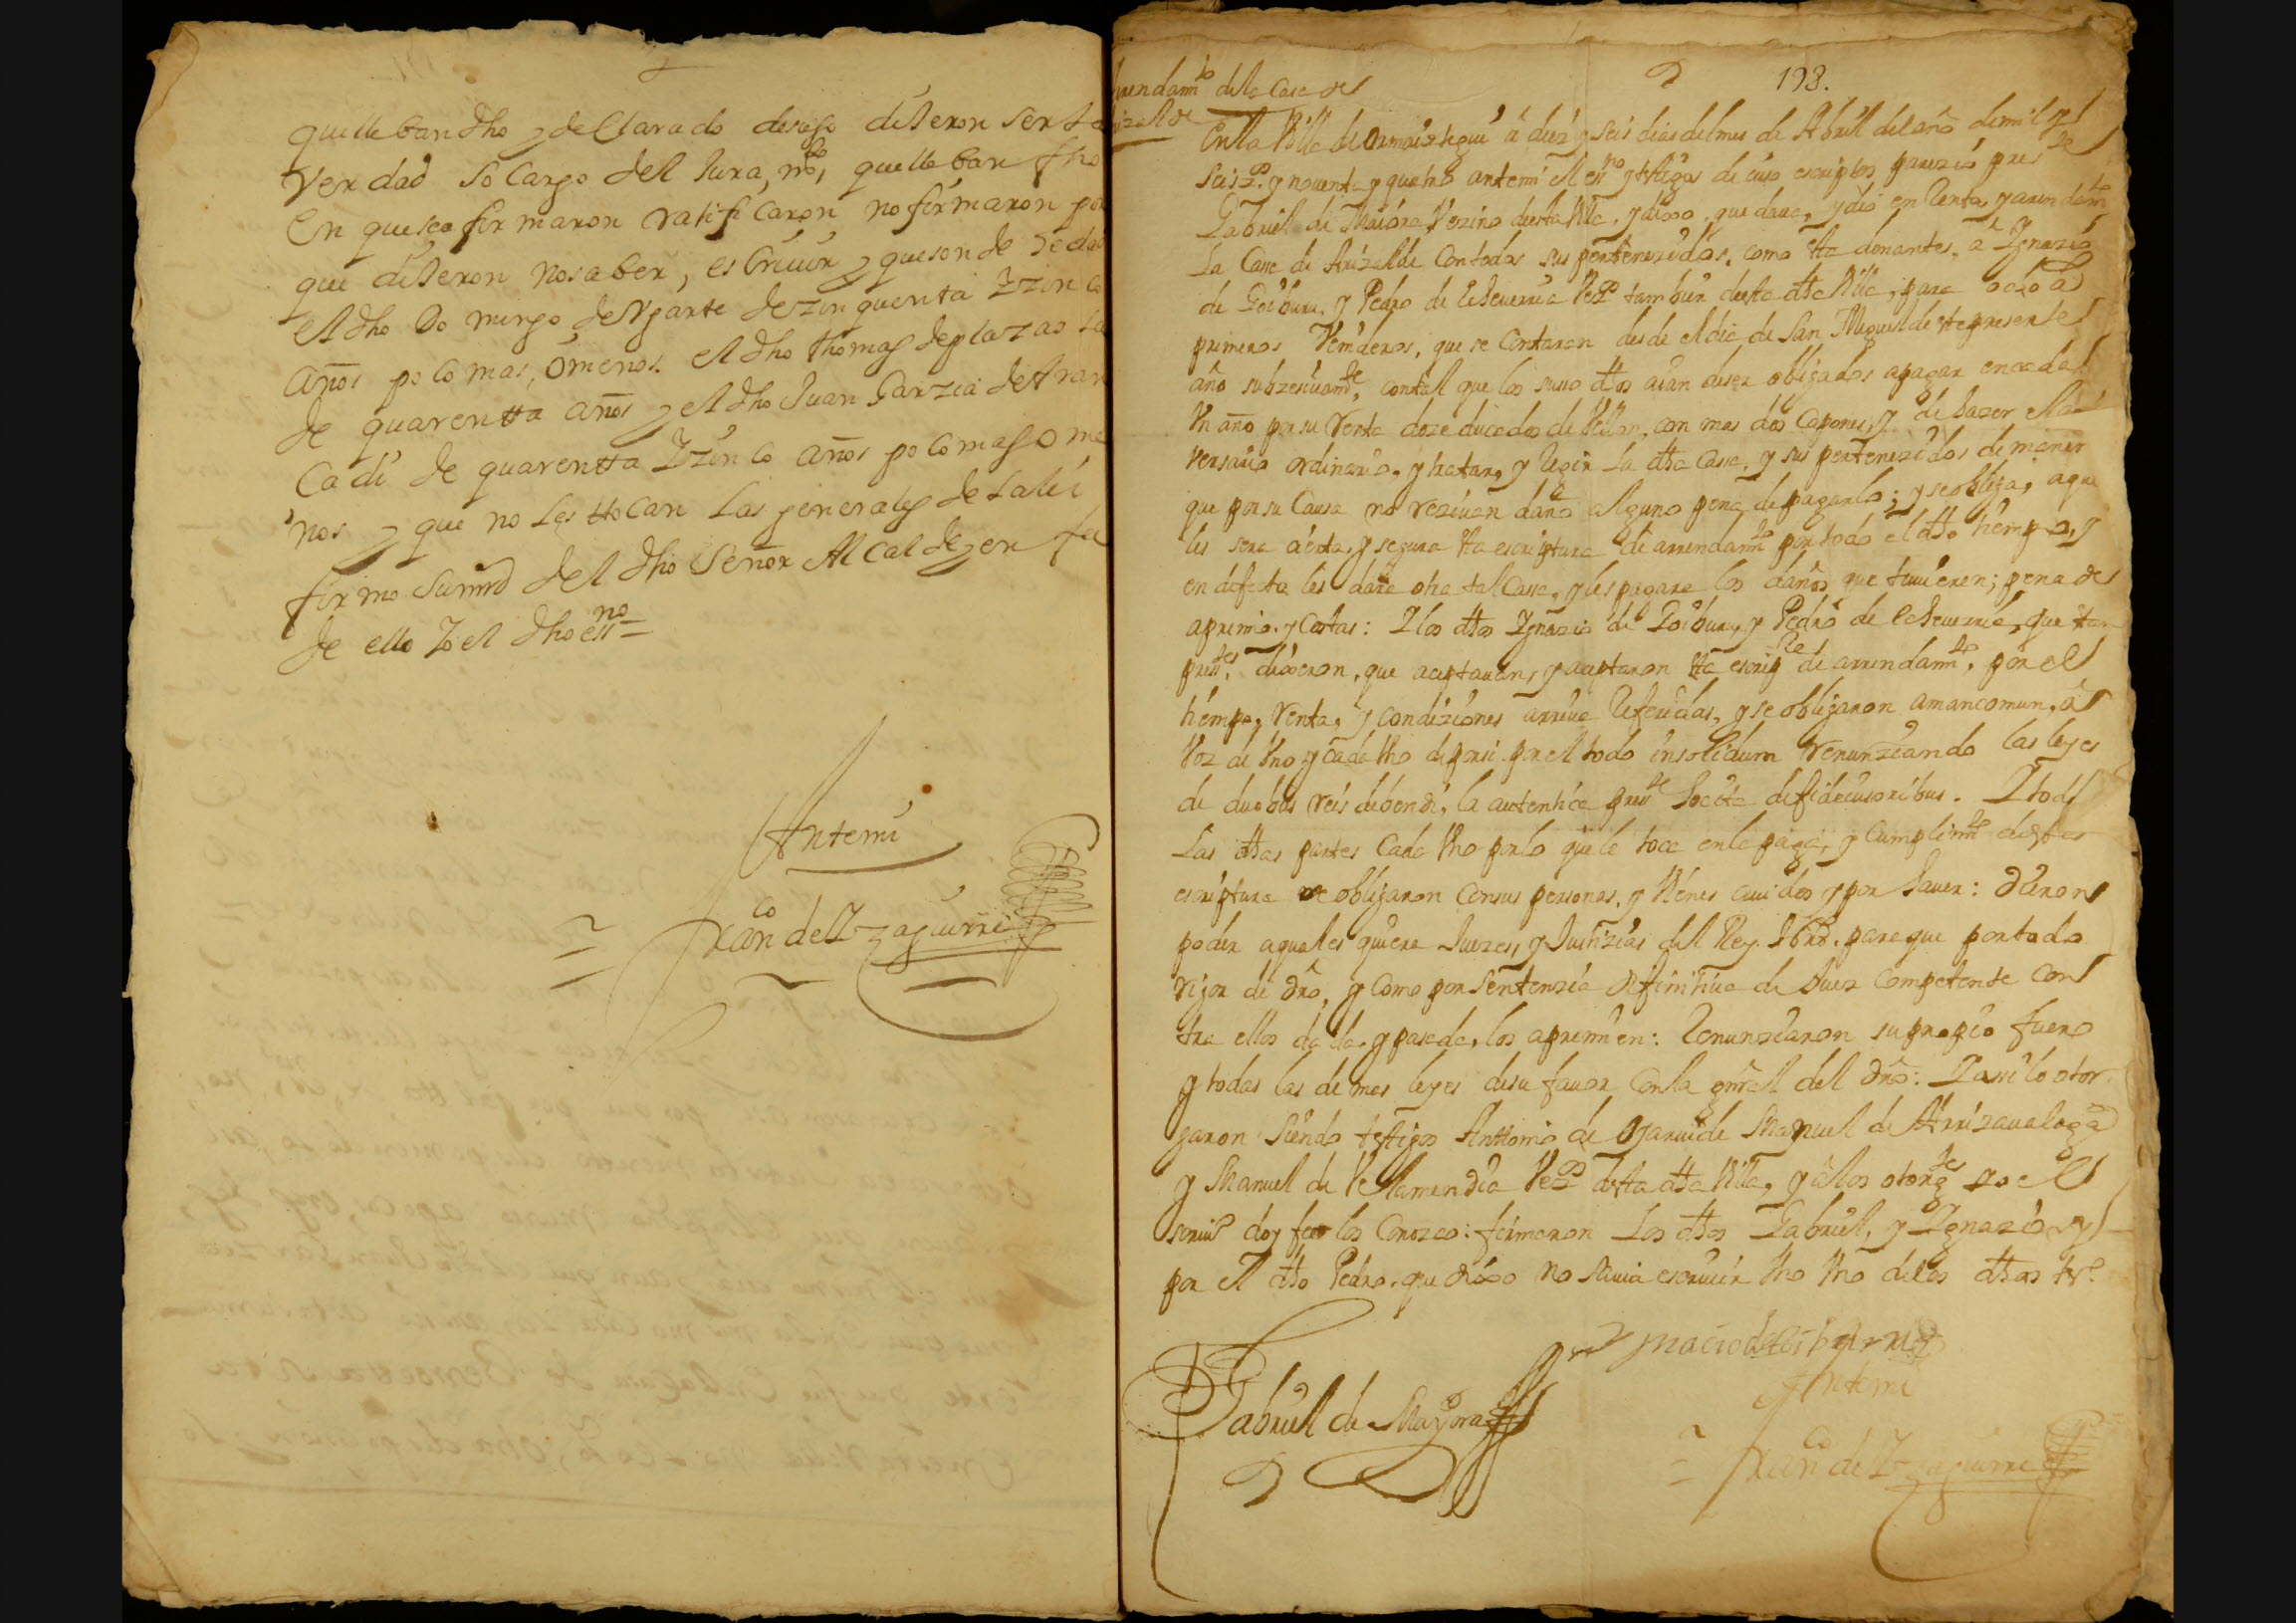 que lleban dho y declarado desuso dijeron ser la
verdad so cargo del Jura,mto, que lleban fho
en que se afirmaron ratificaron no firmaron por
que dijeron no saber, escriuir y que son de hedad
el dho Domingo de Vgarte de zinquenta Zzinco
años poco mas, ó menos. el dho thomas de plazao la
de quarentta años y el dho Juan Garzia de Aran
cadi de quarentta Zzinco años poco mas o me
nos y que no les ttocan las generales de la lei
firmo su mrd del dho Señor Alcalde y en fee
de ello Yo el dho essno
Antemi
Franco de Yzaguirre
193.
arrendamto de la Casa de
Arizalde
En la Villa de Ormaiztegui â diez y seis dias del mes de Abrill del año de mil y
seisºs. y noventa y quatro antemi el esno y ttigos de iuso escriptos parezio preste
Gabriel de Maiora Vezino desta Villa, y dixo, que daua, y dio en Renta, y arendamto
La Casa de Arizalde con todos sus pertenezidos, como sta de nantes, a Ygnazio
de Goiburu, y Pedro de Echeuerria Vezºs tambien desta dha Villa, para ocho as
primeros Venideros, que se Contaran desde el dia de San Miguel de ste presente
año subzesiuamte, con tal que los suso dhos aian de ser obligados a pagar en cada
Vn año por su Renta doze ducados de Vellon, con mas dos Capones, y de hazer el ani
versario ordinario, y tratar, y Regir la dha Casa, y sus pertenezidos de maner
que por su Causa no reziuan daño alguno pena de pagarlo; y se obliga, a que
les sera zierta, y segura sta escriptura de arrendamto por todo el dho tiempo, y
en defecto les dara otra tal Casa, y les pagara los daños que tuuieren; pena de
apremio, y Costas: Y los dhos Ygnazio de Goiburu, y Pedro de Echeuerria, que stan
prestes, dixeron, que aceptauan, y aceptaron sta escripra de arrendamto, por el
tiempo, renta, y condiziones arriua Referidas, y se obligaron a mancomun, â
Voz de Vno, y cada Vno de por si por el todo insolidum renunziando las leyes
de duobus reis debendi, la autentica preste hocita de fideiusoribus. Y todas
Las dhas partes Cada Vno por lo que le toca en la paga, y Cumplimto desta
escriptura se obligaron con sus personas, y Vienes auidos y por hauer: dieron
poder a quales quiera Juezes, y Justizias del Rey. N Sr. para que por todo
rigor de dro, y como por Sentenzia difinitiua de Juez Competente con
tra ellos dada, y pasada, los apremien: Renunziaron su propio fuero
y todas las de mas leyes de su fauor Con la gnrall del dro: Y assi lo otor
garon Siendo testigos Anttonio de Ojaruide Manuel de Arrizaualaga
y Manuel de Vslamendia Vezºs desta dha Villa, y â los otorgtes yo el
scriuº doy fee los Conozco: firmaron Los dhos Gabriel, y Ygnazio, y
por el dho Pedro, que dixo no sauia escriuir Vno Vno de los dhos tsº
Gabriel de Mayora
Ygnacio de Goiburu
Antemi
Franco de Yzaguirre